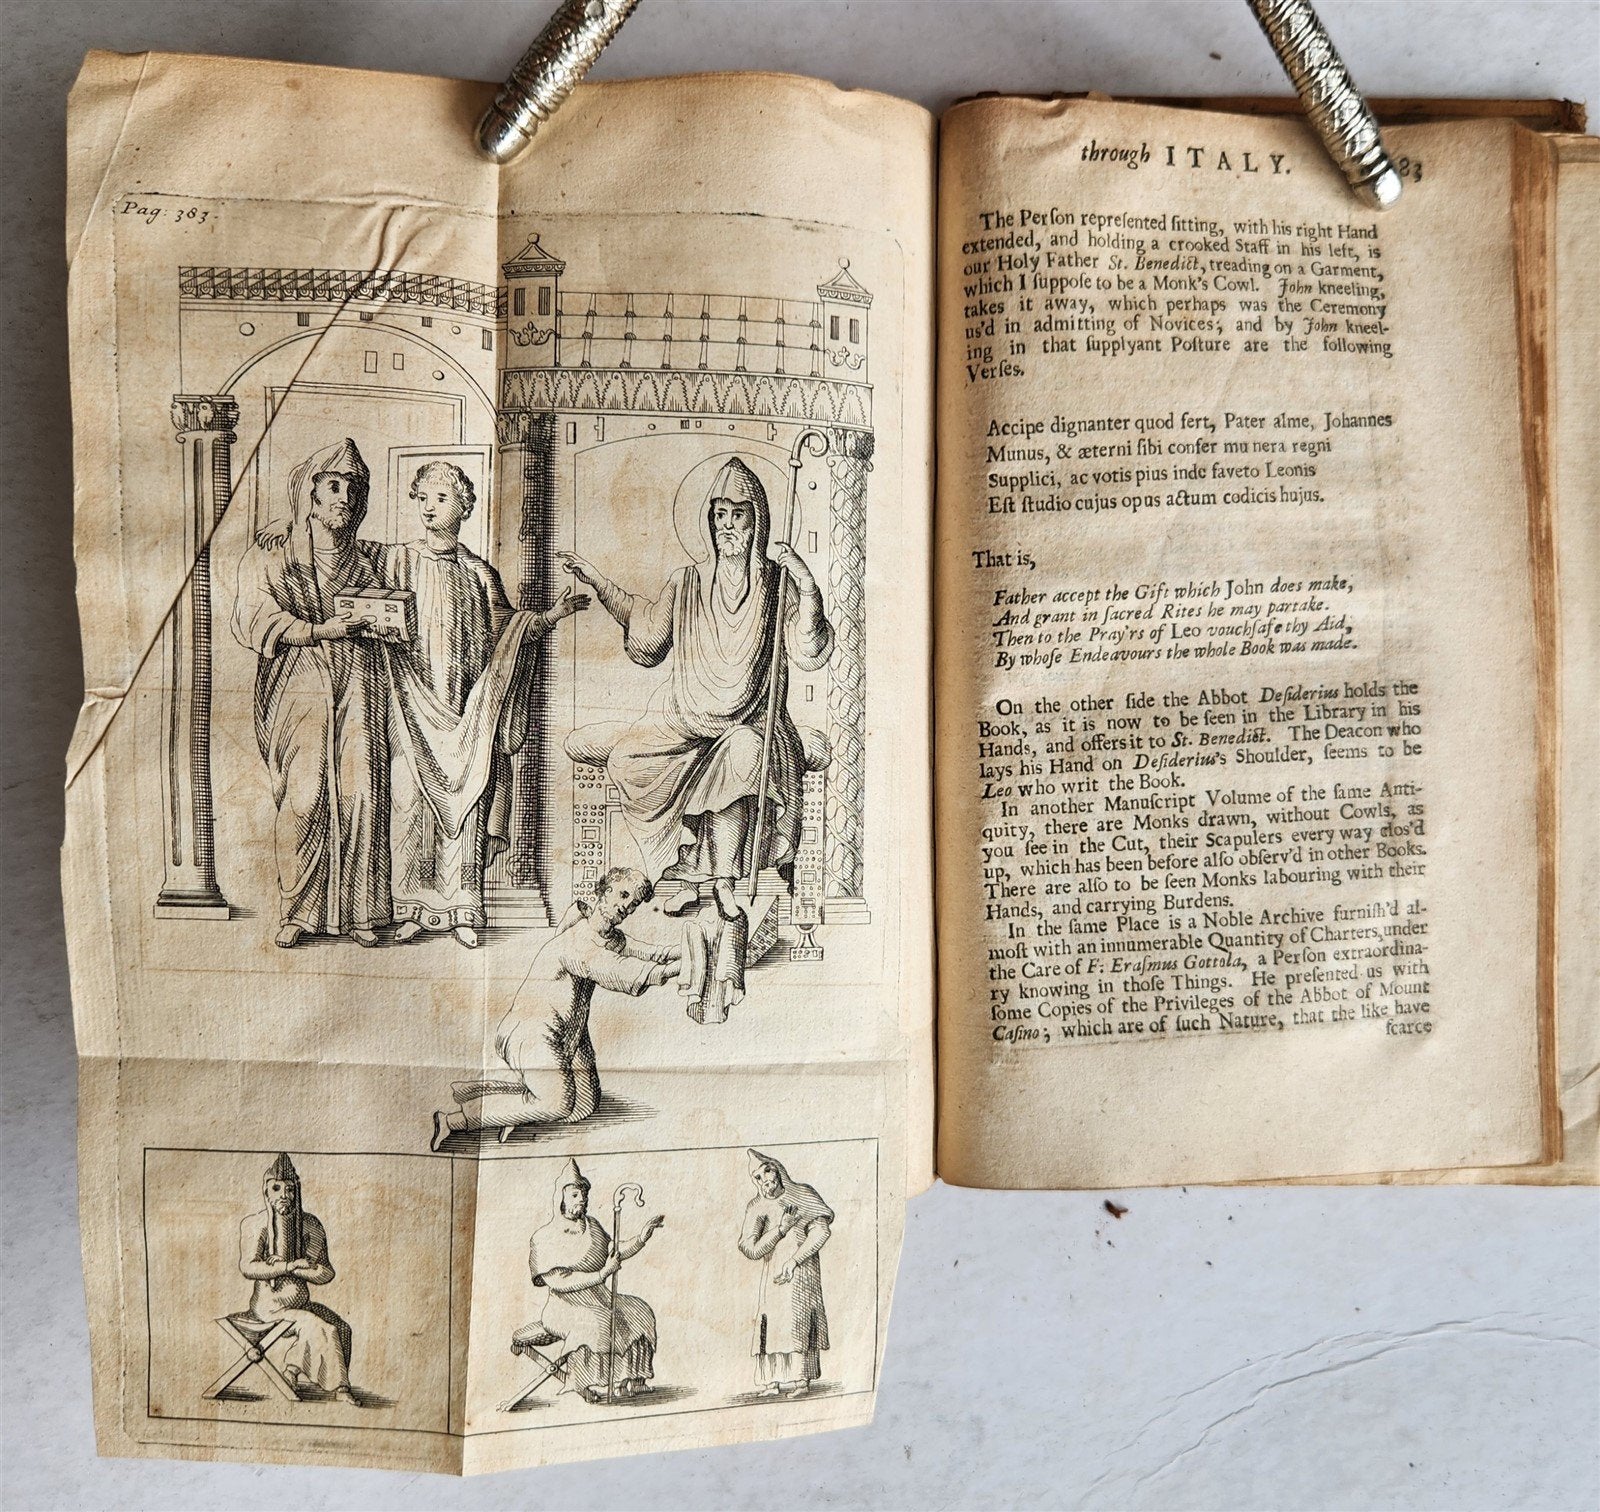 Pag: 383.
through ITALY. 83
The Perſon repreſented ſitting, with his right Hand
extended, and holding a crooked Staff in his left, is
our Holy Father St. Benedict, treading on a Garment,
which I ſuppoſe to be a Monk's Cowl. John kneeling,
takes it away, which perhaps was the Ceremony
us'd in admitting of Novices; and by John kneel-
ing in that ſupplyant Poſture are the following
Verſes.
Accipe dignanter quod fert, Pater alme, Johannes
Munus, & æterni ſibi confer mu nera regni
Supplici, ac votis pius inde faveto Leonis
Eſt ſtudio cujus opus actum codicis hujus.
That is,
Father accept the Gift which John does make,
And grant in ſacred Rites he may partake.
Then to the Pray'rs of Leo vouchſafe thy Aid,
By whoſe Endeavours the whole Book was made.
On the other ſide the Abbot Deſiderius holds the
Book, as it is now to be ſeen in the Library in his
Hands, and offers it to St. Benedict. The Deacon who
lays his Hand on Deſiderius's Shoulder, ſeems to be
Leo who writ the Book.
In another Manuſcript Volume of the ſame Anti-
quity, there are Monks drawn, without Cowls, as
you ſee in the Cut, their Scapulers every way clos'd
up, which has been before alſo obſerv'd in other Books.
There are alſo to be ſeen Monks labouring with their
Hands, and carrying Burdens.
In the ſame Place is a Noble Archive furniſh'd al-
moſt with an innumerable Quantity of Charters, under
the Care of F: Eraſmus Gottola, a Perſon extraordina-
ry knowing in thoſe Things. He preſented us with
ſome Copies of the Privileges of the Abbot of Mount
Caſino; which are of ſuch Nature, that the like have
ſcarce